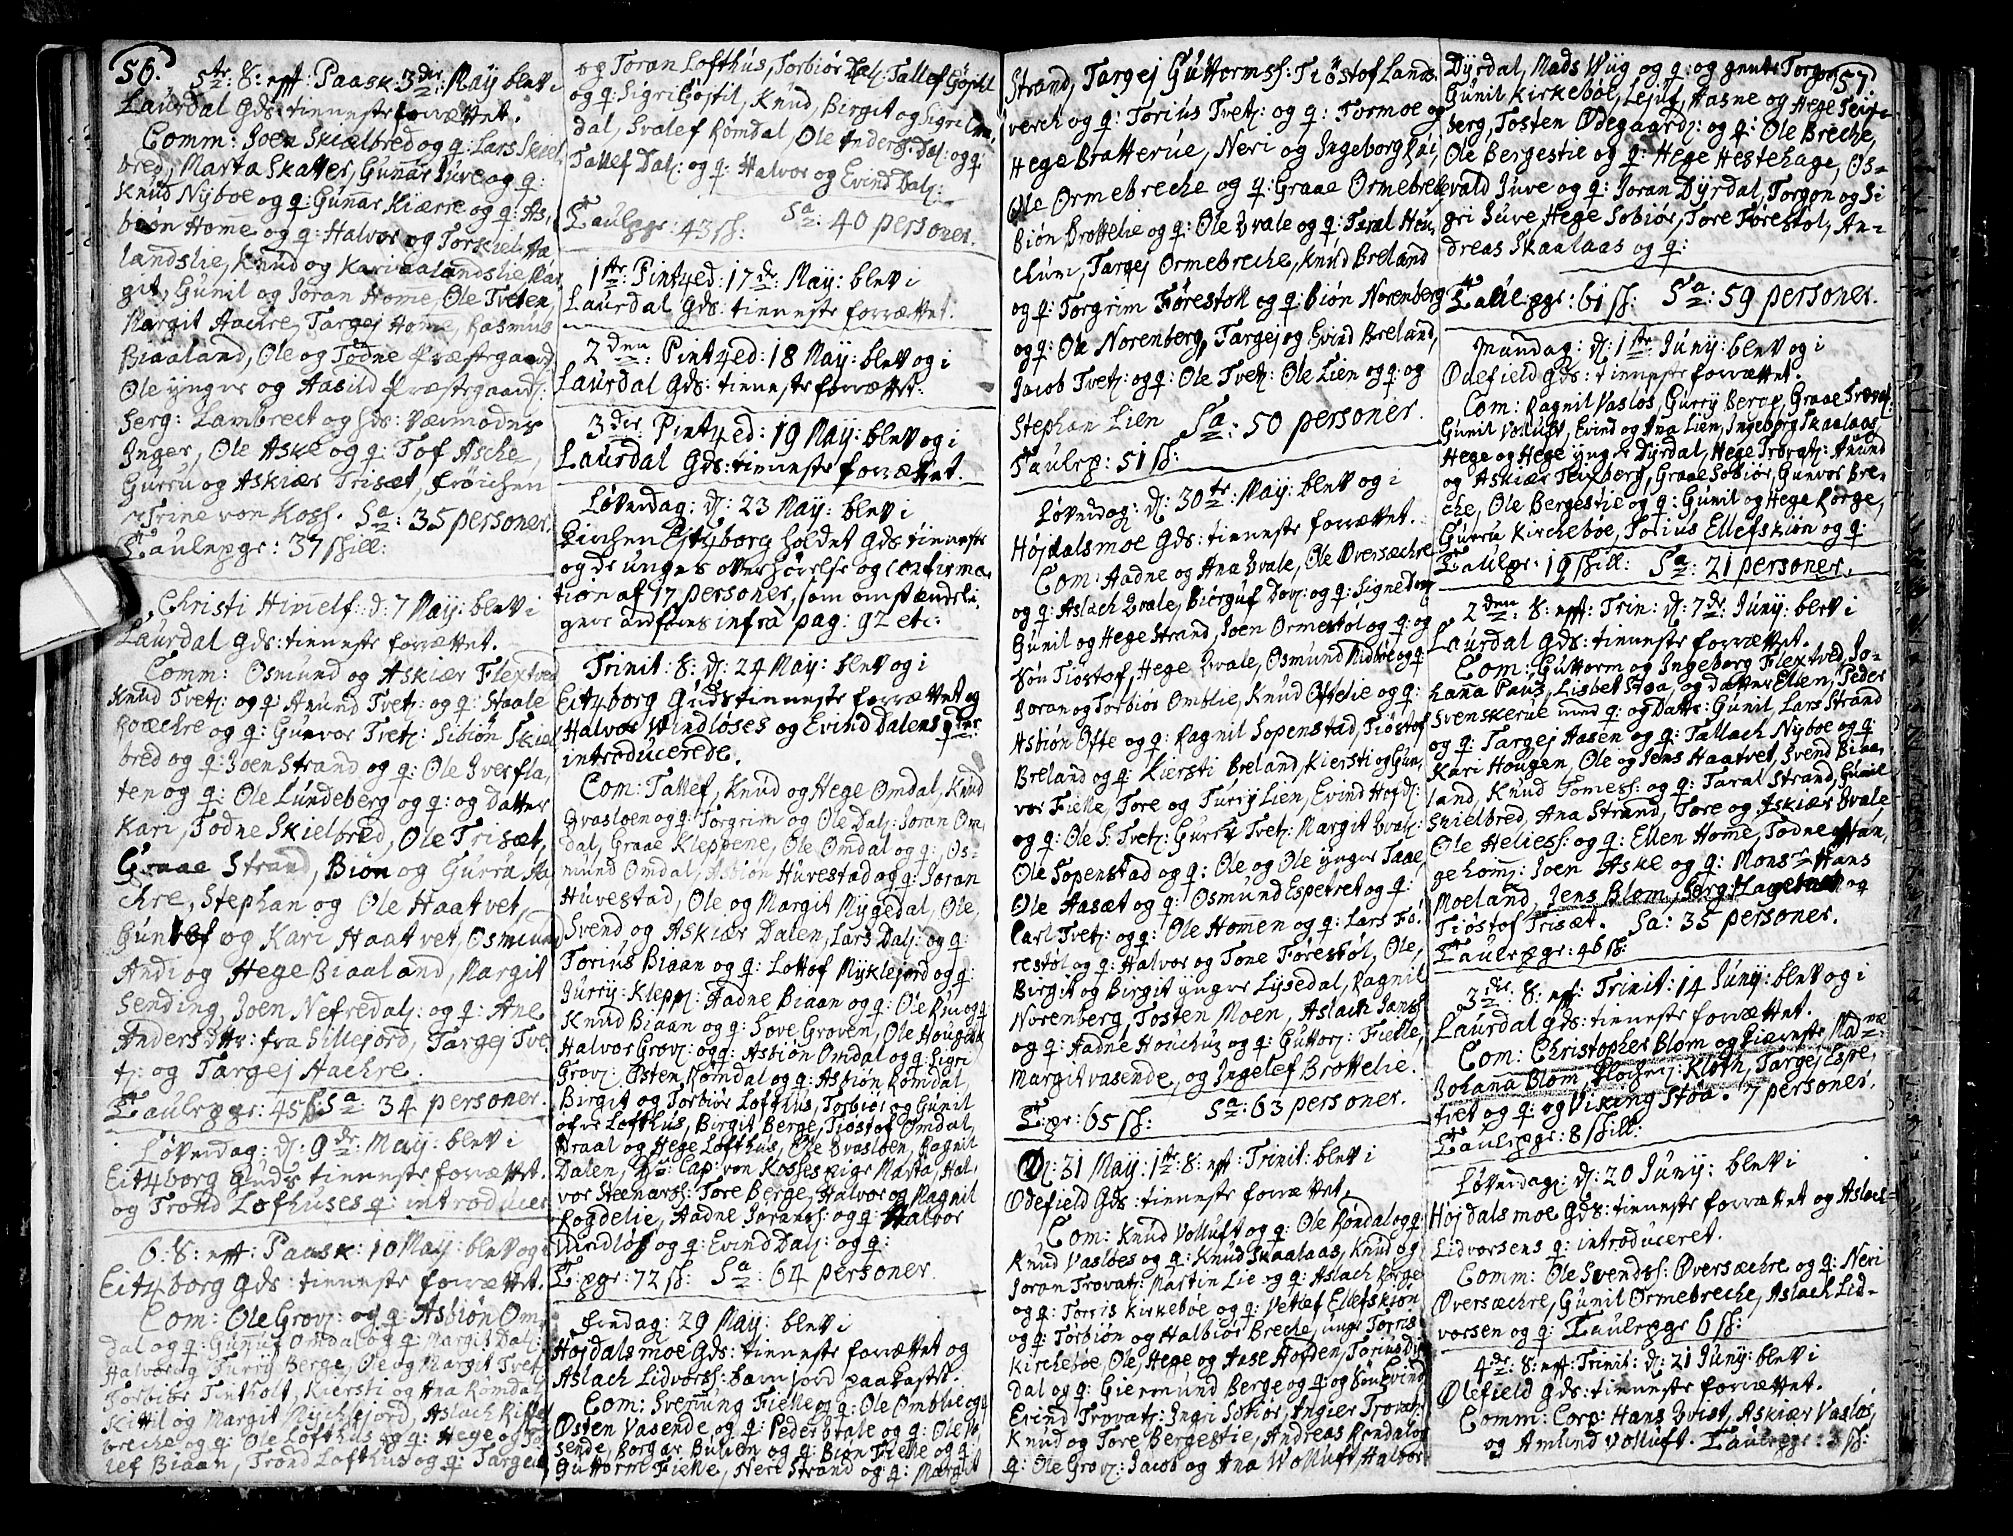 56.
5te: S: eft: Paask 3die: May blev i
Laurdal Gds: tienneste forrættet.
Comm: Joen Skielbred og q: Lars Skiel
bred, Marta Skatter, Gunnar Juve og q:
Knud Nyboe og q: Gunar Kiærre og q: As
biøn Home og q: Halvor og Torkiel Aa
landslie, Knud og Kari aalandslie, Mar
git, Gunil og Joran Home, Ole Tveten,
Margit Aachre, Targej Home, Rasmus
Biaaland, Ole og Todne Præstegaard
Ole yngre og Aasild Præstegaard:
Serg: Lambrect og Hds: Værmoder
Inger, Ole Aske og q: Tof Asche,
Gurru og Askiær Trisæt, frøichen
Trine von Koss. Sa: 35 personer.
Taulepgr: 37 skill:
Christi Himelf: d: 7 May: blev i
Laurdal Gds: tienneste forrættet.
Comm: Osmund og Askiær Flextved
Knud Tvetz: og q: Amund Tvetz: og q: Staale
Roæchre og q: Gunvor Tvetz: Sibiøn Skiel
bred og q: Joen Strand og q: Ole Iverfla
ten og q: Ole Lundeberg og q: og datter
Kari, Todne Skielbred, Ole Trisæt,
Graae Strand, Biøn og Gurru Aa
chre, Stephan og Ole Haatvet,
Gunlef og Kari Haatvet, Osmund
Andi og Hege Biaaland, Margit
Sending, Joen Nefredalz: og q: Ane
Anders Dtr: fra Sillejord, Targej Tve
tz: og Targej Aachre.
Taulepgr: 45 s Sa 34 personer.
Løverdag: d: 9de: May: blev i
Eitzborg Guds tienneste forrættet.
og Trond Lofhuses q: introducer
6: S: eft: Paask: 10 May: blev og i
Eitzborg Gds: tienneste forrættet.
Com: Ole Grovz: og q: Asbiøn Om
dal og q: Gunuf Omdal og q: Margit Dalz:
Halvor og Turry Berge, Ole og Margit Tvetz
Torbiør Tintholt, Kiersti og Ana Romdal
Kittil og Margit Nychlejord, Aslach Kiffe
breche og q: Ole Lofthus og q: Hege og To
lef Biaan, Trond Lofthus og q: Targej
og Joran Lofthus, Torbiør Dalz: Tallef Gøstil
og q: Sigri Gøstil, Knud, Birgit og Sigri Om
dal, Svalef Romdal, Ole Anders S: Dal: og q:
Tallef Dalz: og q: Halvor og Evind Dalz:
Taulpgr: 43 s: Sa: 40 personer.
1te: Pintzed: 17de: May: blev i
Laurdal Gds: tienneste forrættet.
2den: Pintzed: 18 May: blev og i
Laurdal Gds: tienneste forrættet.
3die: Pintzed: 19 May: blev og i
Laurdal Gds: tienneste forrættet.
Løverdag: d: 23 May: blev i
Kirchen Eitzborg holdet Gds tienneste
og de unges overhørelse og confirma
tion af 17 personer, som omstændeli
gere anføres infra pag: 92 etc:
Trinit: S: d: 24 May: blev og i
Eitzborg Gudstienneste forrættet og
Halvor Windløses og Evind Dalens qver
introducerede.
Com: Tallef, Knud og Hege Omdal, Knud
Gvasloen og q: Torgrim og Ole Dalz: Joran Om
dal, Graae Kleppene, Ole Omdal og q: Os
mund Omdal, Asbiøn Huvestad og q: Joran
Huvestad, Ole og Margit Mygedal, Ole,
Svend og Askiær Dalen, Lars Dalz: og q:
Torius Biaan og q: Lottof Myklejord og q:
Jurry: Klepp: Aadne Biaan og q: Ole Rui og q
Knud Biaan og q: Sove Groven, Ole Hougen
Halvor Grovz: og q: Asbiøn Omdal og q: Sigri
Grovz: Østen Romdal og q: Asbiøn Romdal,
Birgit og Torbiør Lofthus, Torbiør og Gunil
ofre Lofthus, Birgit Berge, Tiostof Omdal,
Draal og Hege Lofthus, Ole Gvasloen, Ragnil
Dalen, Hr: Cap: von Kosses pige Marta, Hal
vor Steenars: Tore Berge, Halvor og Magnil
Rogdelie, Aadne Jorans: og q: Halvor
Vindløs og q: Evind Dalz: og q:
T: pgr: 72 s: Sa: 64 personer.
fredag: 29 May: blev i
Højdalsmoe Gds: tienneste forrættet og
Aslach Lidvors: barn jord paakastet.
Com: Svenung Fielle og q: Ole Omblie og q:
Østen Vasende og q: Peder Qvale og q: Ole Va
sende, Borgar Buløn og q: Biøn Fielle og q:
Guttorm Fielle, Neri Strand og q: Margit
Strand, Targej Guttorms: Tiøstof Lands
verch og q: Torius Tvetz: og q: Tormoe og
Hege Bratterue, Neri og Ingeborg Rai,
Ole Ormebreche og q: Graae Ormebrech
Biøn Brottelie og q: Ole Qvale og q: Taral Hou
chum, Targej Ormebreche, Knud Breland
og q: Torgrim Førestoll og q: Biøn Norenberg
og q: Ole Norenberg, Targej og Evind Breland,
Jacob Tvetz: og q: Ole Tvetz: Ole Lien og q: og
Stephan Lien Sa: 50 personer.
Taulep: 51 s:
Løverdag: d: 30te: May: blev og i
Højdalsmoe Gds: tienneste forrættet.
Com: Aadne og Ana Qvale, Ole Oversæchre
og q: Aslach Qvale, Biørguf Dovz: og q: Signe Dov
Gunil og Hege Strand, Joen Ormestol og q: og
Søn Tiøstof, Hege Qvale, Osmund Nidboe og q
Joran og Torbiør Omblie, Knud Oftelie og q:
Asbiøn Ofte og q: Ragnil Sopenstad, Tiøstof
Breland og q: Kiersti Breland, Kiersti og Gun
vor Fielle, Tore og Turry Lien, Evind Hojd:
og q: Ole S: Tvetz: Gurru Tvetz: Margit Qvalz:
Ole Sopenstad og q: Ole og Ole yngre Jaae,
Ole Aasæt og q: Osmund Espetvet og q:
Carl Tvetz: og q: Ole Homen og q: Lars Fø
restøl og q: Halvor og Tone Førestøl, Ole,
Birgit og Birgit yngre Lysedal, Ragnil
Norenberg, Tosten Moen, Aslach Jans:
og q: Aadne Houchus og q: Guttorz: Fielle,
Margit vasende, og Ingelef Brottelie.
T: pgr: 65 s: Sa: 63 personer.
D: 31 May: 1te: S: eft: Trinit: blev i
Ødefield Gds: tienneste forrættet,
Com: Knud Volluft og q: Ole Rondal og q:
Knud Vasloes og q: Knud Skaalaas, Knud og
Joran Trovatz: Martin Lie og q: Aslach Rorge
og q: Torgis Kirkeboe og q: Vetlef Ellefskiøn
og q: Torbiøn og Halbiør Breche, unge Torris
Kircheboe, Ole, Hege og Aase Hofden, Torius Dyr
dal og q: Giermund Berge og q: og Søn Evind
Evind Trovatz: Ingri Sobiør, Ingier Trovatz:
Knud og Tore Bergestie, Andreas Rondal og
q: Ole Grovz: Jacob og Ana Volluft, Halvor
57.
Dyrdal, Mads Wug og q: og gamle Torgon
Gunil Kirkeboe, Lejuf, Aasne og Hege Teige
berg, Tosten Ødegaardz: og q: Ole Breche,
Ole Bergestie og q: Hege Hestehage, Os-
vald Juve og q: Joran Dyrdal, Torgon og Si
gri Juve, Hege Sobiør, Tore Førestol, An-
dreas Skaalaas og q:
Taulepgr: 61 s: Sa: 59 personer.
Mandag: d: 1te Juny: blev og i
Ødefield Gds: tienneste forrættet.
Com: Ragnil Vaslos, Gurry Berge, Graae Trovatz:
Gunil Volluft, Evind og Ana Lien, Ingeborg Skaalaas
Hege og Hege yngre Dyrdal, Hege Trovatz: Amund
og Askiær Teigberg, Graae Sobiør, Gunvor Bre
che, Ole Bergestie og q: Gunil og Hege Rorge,
Gurru Kircheboe, Torius Ellefskiøn og q:
Taulpgr: 19 skill: Sa: 21 personer.
2den: S: eft: Trin: d: 7de: Juny: blev i
Laurdal Gds: tienneste forrættet.
Com: Guttorm og Ingeborg Flextved, Jo-
hana Pauz, Lisbet Stoa, og datter Ellen, Peder
Svenskerue med q: og Datter: Gunil, Lars Strand
og q: Targej Aasen og q: Tallach Nyboe og q:
Kari Hougen, Ole og Jens Haatvet, Svend Biaa
land, Knud Tomess: og q: Taral Strand, Gunil
Skielbred, Ana Strand, Tore og Askiær Qvale
Ole Helies: og q: Ellen Home, Todne Aftan,
ge hom: Joen Aske og q: Monsr Hans
Moeland, Jens Blom, Sergt Lagetvet og
Tiøstof Trisæt. Sa: 35 personer.
Taulepgr: 46 s:
3die: S: eft: Trinit: 14 Juny: blev og i
Laurdal Gds: tienneste forrættet.
Com: Christopher Blom og Kiæreste Madme:
Johana Blom, Klocherz: Kloth, Targej Espe,
tvet og q: og Viking Støa. 7 personer.
Taulepgr: 8 skill:
Løverdag: d: 20 Juny: blev i
Højdalsmoe Gds: tienneste forrættet og Aslach
Lidvorsens q: introduceret.
Comm: Ole Svends: Oversæchre og q: Neri
Oversæchre, Gunil Ormebreche, Aslach Lid-
vorsen og q: Taulepgr 6 s:
4de: S: eft: Trinit: d: 21 Juny: blev i
Ødefield Gds: tienneste forrættet.
Comm: Corp: Hans Qvist, Askiær Vaslos,
og Amund Volluft. Taulepgr: 3 s: